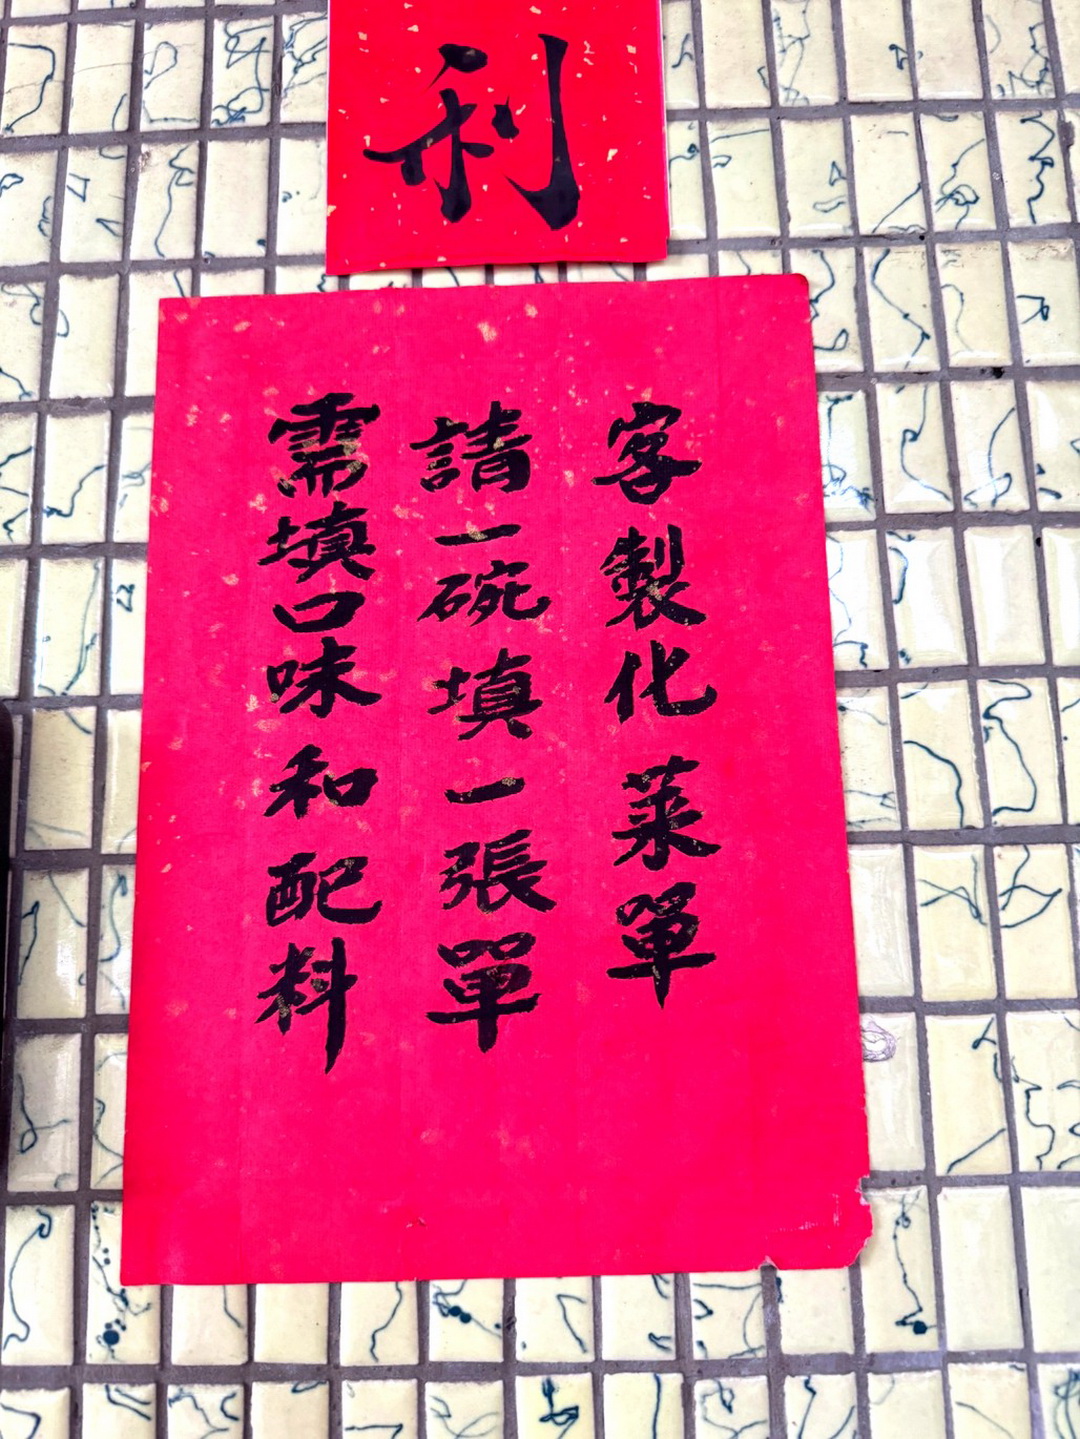 利
客製化菜單
請一碗填一張單
需填口味和配料